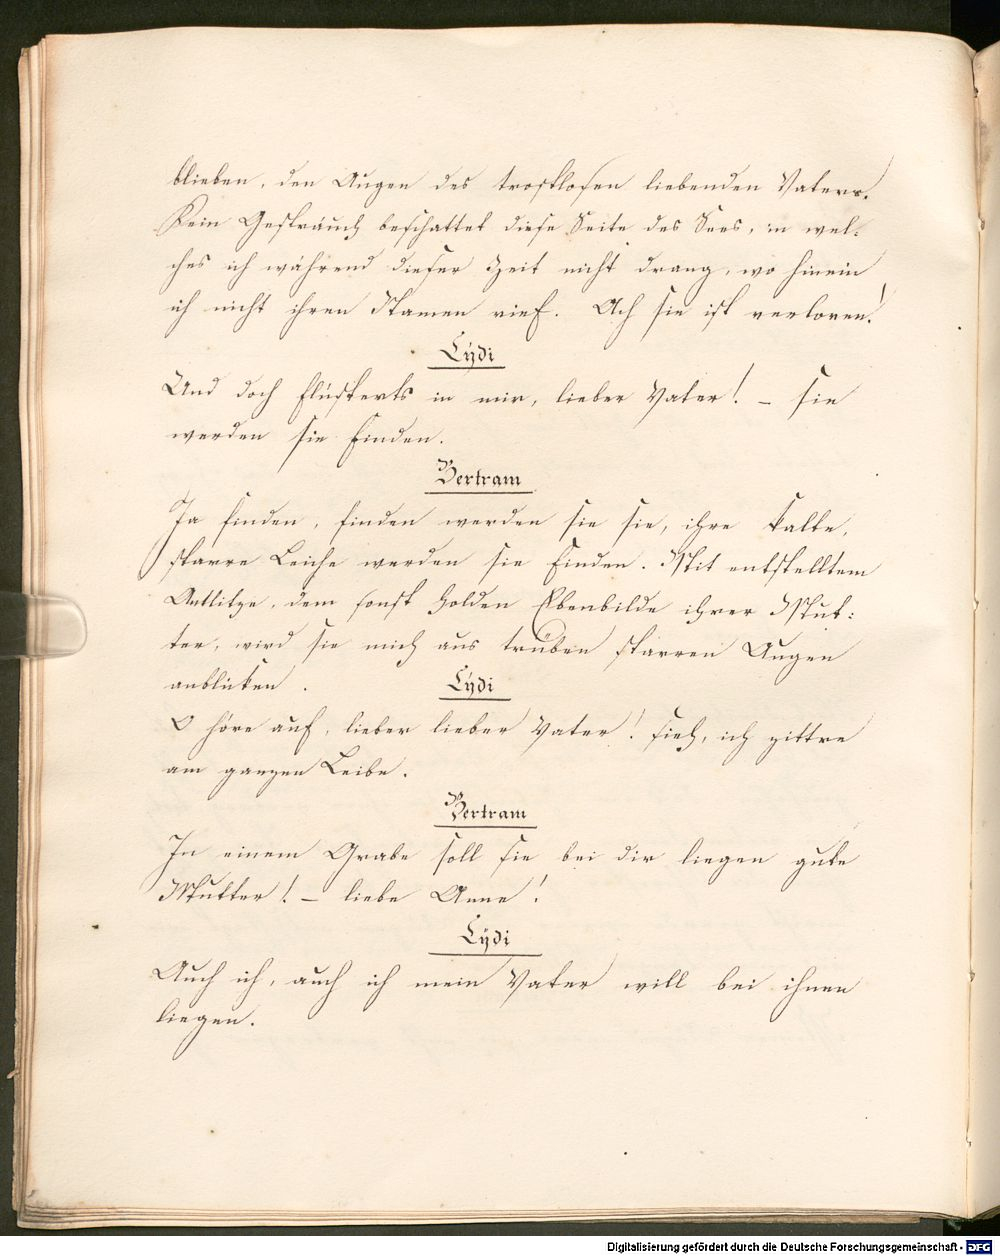 blieben, den Augen des trostlosen liebenden Vaters.
Kein Gesträuch beschattet diese Seite des Sees, in wel:
ches ich während dieser Zeit nicht drang, wo hinein
ich nicht ihren Namen rief. Ach sie ist verloren!
Lÿdi
Und doch flüsterts in mir, lieber Vater! – sie
werden sie finden.
Bertram
Ja finden, finden werden sie sie, ihre kalte,
starre Leiche werden sie finden. Mit entstelltem
Antlitze, dem sonst holden Ebenbilde ihrer Mut:
ter, wird sie mich aus trüben starren Augen
anblicken.
Lÿdi
O höre auf, lieber lieber Vater! sieh, ich zittre
am ganzen Leibe.
Bertram
In einem Grabe soll sie bei dir liegen gute
Mutter! – liebe Anne!
Lÿdi
Auch ich, auch ich mein Vater will bei ihnen
liegen.
Digitalisierung gefördert durch die Deutsche Forschungsgemeinschaft - DFG